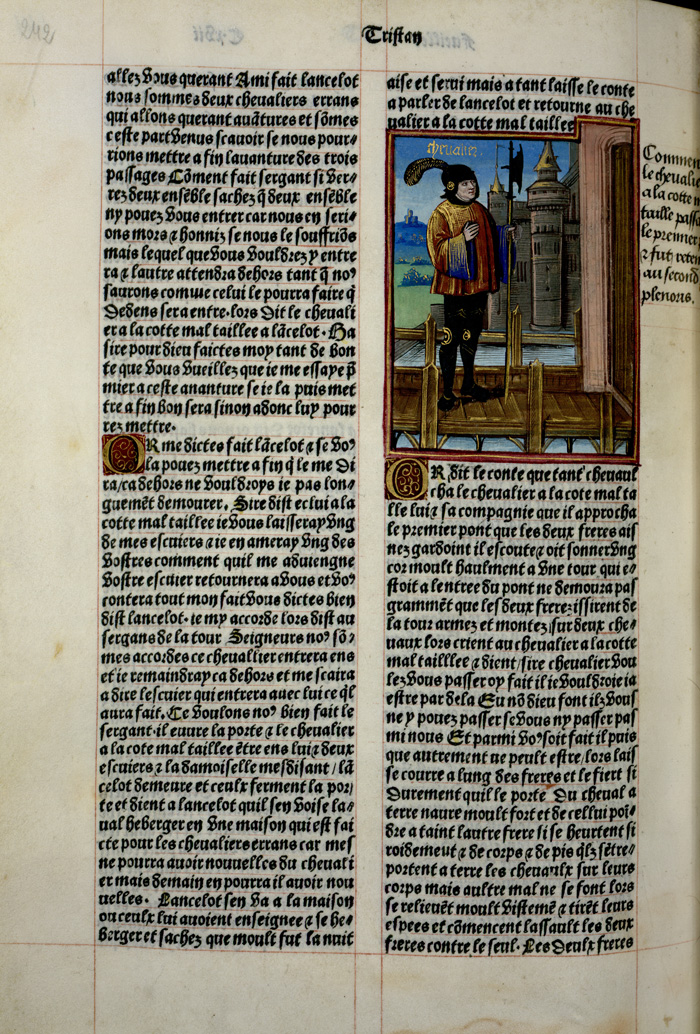 212
Tristan
allez vous querant Ami fait lancelot
nous sommes deux cheualiers errans
qui allons querant auãtures et sõmes
ceste part venus scauoir se nous pour⸗
rions mettre a fin lauanture des trois
passages Cõment fait sergant si ver⸗
rez deux ensẽble sachez q̃ deux ensẽble
ny pouez vous entrer car nous en seri⸗
ons mors ⁊ honniz se nous le souffriõs
mais lequel que vous vouldrez y entre
ra ⁊ lautre attendra dehors tant q̃ noꝰ
saurons comme celui le pourra faire q̃
dedens sera entre· lors dit le cheuali
er a la cotte mal taillee a lãcelot· Ha
sire pour dieu faictes moy tant de bon
te que vous vueillez que ie me essaye p̃
mier a ceste ananture se ie la puis met
tre a fin bon sera sinon adonc luy pour
rez mettre·
OR me dictes fait lãcelot ⁊ se voꝰ
la pouez mettre a fin q̃ le me di
ra/ca dehors ne vouldroys ie pas lon⸗
guemẽt demourer. Sire dist celui a la
cotte mal taillee ie vous laisseray vng
de mes escuiers ⁊ ie en ameray vng des
vostres comment quil me aduiengne
vostre escuier retournera a vous et voꝰ
contera tout mon fait vous dictes bien
dist lancelot· ie my accorde lors dist au
sergans de la tour Seigneurs noꝰ sõ⸗
mes accordes ce cheuallier entrera ens
et ie remaindray ca dehors et me scaira
a dire lescuier qui entrera auec lui ce q̃l
aura fait. Ce voulons noꝰ bien fait le
sergant· il euure la porte ⁊ le cheualier
a la cote mal taillee ẽtre ens lui ⁊ deux
escuiers ⁊ la damoiselle mesdisant / lã
celot demeure et ceulx ferment la por⸗
te et dient a lancelot quil sen voise la⸗
ual heberger en vne maison qui est fai
cte pour les cheualiers errans car mes
ne pourra auoir nouuelles du cheuali
er mais demain en pourra il auoir nou
uelles· Lancelot sen va a la maison
ou ceulx lui auoient enseignee ⁊ se he⸗
berger et sachez que moult fut la nuit
aise et serui mais a tant laisse le conte
a parler de lancelot et retourne au che
ualier a la cotte mal taillee
cheualier.
Commen
le cheualie
a la cotte m
taille passa
le premier
⁊ fut reten
au second
plenoris.
OR dit le conte que tant cheuaul
cha le cheualier a la cote mal ta
lle lui ⁊ sa compagnie que il approcha
le premier pont que les deux freres ais
nez gardoint il escoute ⁊ oit sonner vng
cor moult haulment a vne tour qui e⸗
stoit a lentree du pont ne demoura pas
grammẽt que les deux freres issirent de
la tour armez et montez sur deux che⸗
uaux lors crient au cheualier a la cotte
mal tailllee ⁊ dient / sire cheualier vou
lez vous passer oy fait il ie vouldroie ia
estre par dela En nõ dieu font ilz vous
ne y pouez passer se vous ny passer par
mi nous Et parmi voꝰ soit fait il puis
que autrement ne peult estre / lors lais
se courre a lung des freres et le fiert si
durement quil le porte du cheual a
terre naure moult fort et de cellui poi⸗
dre a taint lautre frere si se heurtent si
roidement ⁊ de corps ⁊ de pis q̃lz sẽtre⸗
portent a terre les cheuaulx sur leurs
corps mais aultre mal ne se font lors
se relieuẽt moult vistemẽ ⁊ tirẽt leurs
espees et cõmencent lassault les deux
freres contre le seul· Les deulx freres